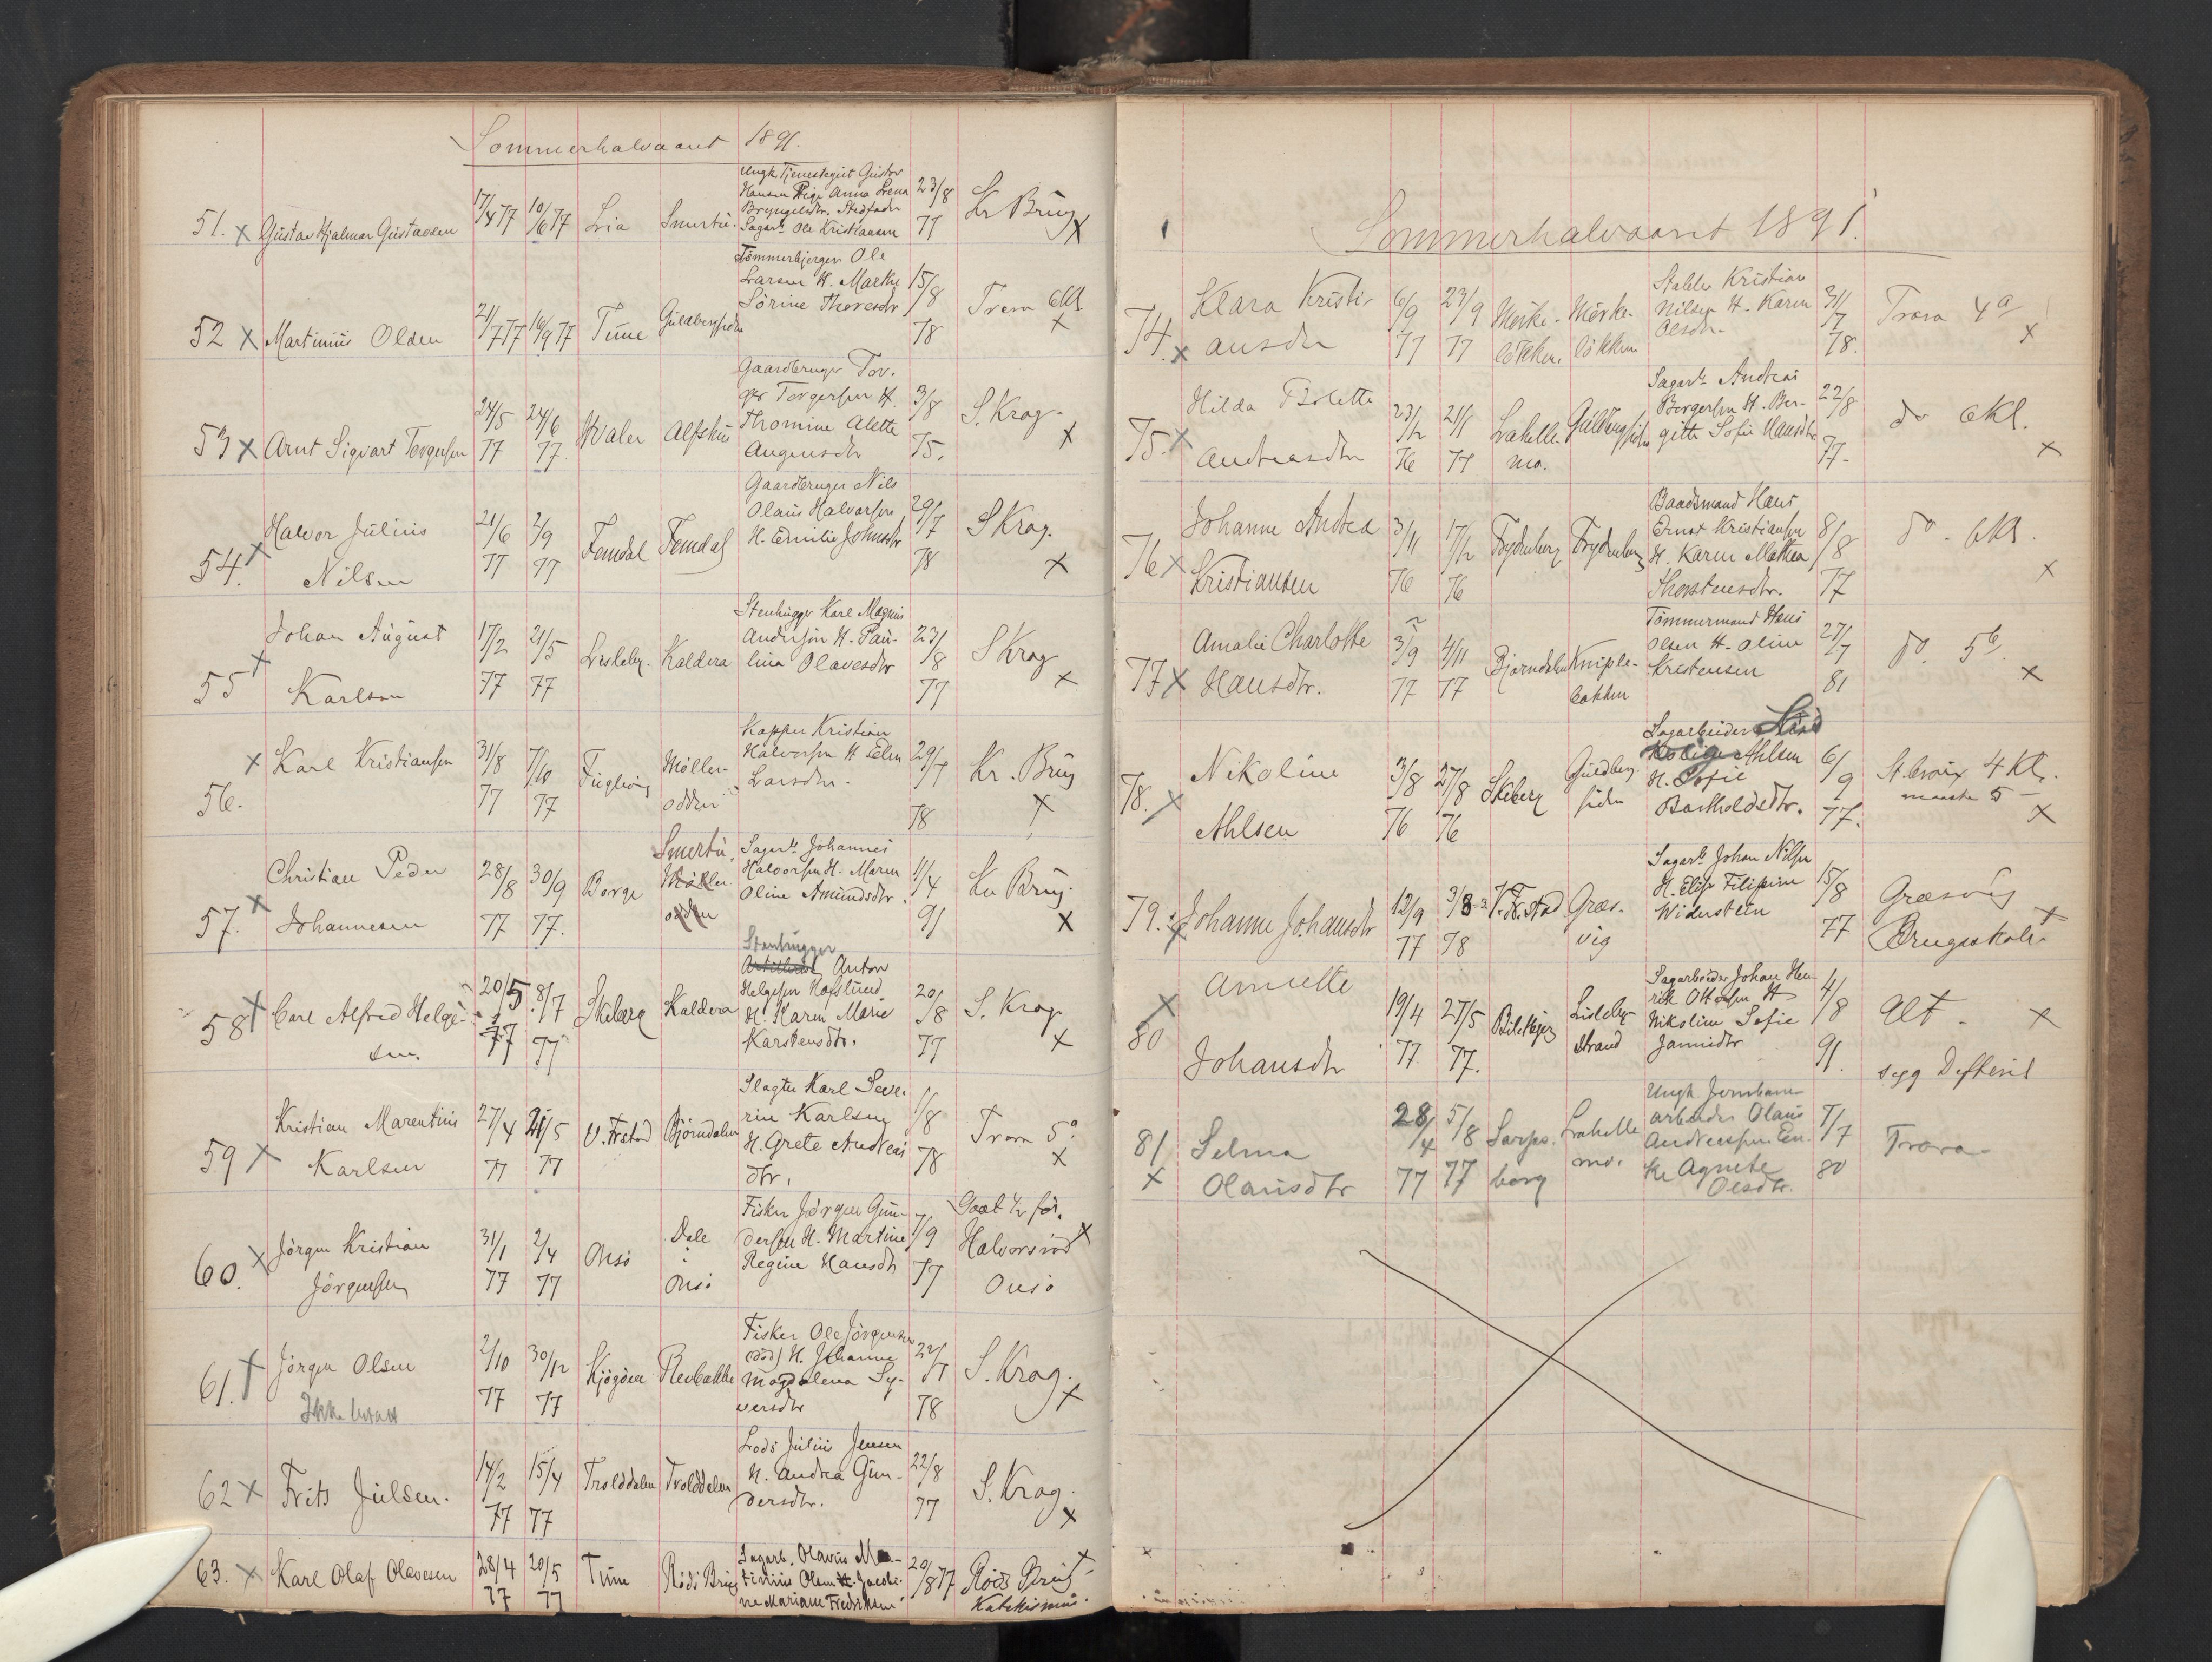 Sommerhalvaaret 1891.
51. x Gustav Hjalmar Gustavsen 17/4 77 10/6 77 Lia Smertu. Ungk. Tjenestegut Gustav
Hansen Pige Anna Lrena
Bryngelsdtr. Stedfader
Sagarb. Ole Kristiansen 23/8 77 Kr Brug x
52 x Martinius Olsen 21/7 77 16/9 77 Tune Guldbergsiden Tömmerbjerger Ole
Larsen H. Marthe
Sörine Thoresdtr 15/8 78 Trara 6kl x
53 x Arnt Sigvart Torgersen 24/5 77 24/6 77 Hvaler Alfshus Gaardbruger Tor-
ger Torgersen H.
Thomine Alette
Augensdtr 3/8 75. S. Krag. x
54. x Halvor Julius
Nilsen 21/6 77 2/9 77 Femdal Femdal Gaardbruger Nils
Olaus Halvorsen
H. Emilie Johnsdtr 29/7 78 S Krag. x
55 x Johan August
Karlsen 17/2 77 21/5 77 Lisleby. Kaldera Stenhugger Karl Magnus
Andersen H. Pau-
lina Olavesdtr 23/8 77 S Krag x
56. x Karl Kristiansen 31/8 77 7/10 77 Fuglevig Möller-
odden Kapper Kristian
Halvorsen H Elen
Larsdtr. 29/7 78 Kr. Brug x
57. x Christian Peder
Johannesen 28/8 77 30/9 77. Borge Smertu.
Möller-
odden Sagarb. Johannes
Halvorsen H. Maren
Oline Amundsdtr. 11/4 91 Kr Brug. x
58 x Carl Alfred Helge-
sen. 20/5 77 8/7 77 Skeberg Kaldera Stenhugger
Anton
Helgesen Hafslund
H. Karen Marie
Karstensdtr. 20/8 77 S. Krag x
59 x Kristian Marentius
Karlsen 27/4 77 21/5 77 V. Frstad Björndalen Slagter Karl Seve-
rin Karlsen
H. Grete Andreas
dtr. 1/8 78 Trara 5a x
60. x Jörgen Kristian
Jörgensen 31/1 77 2/4 77 Onsö Dale
i
Onsö Fisker Jörgen Gun-
dersen H. Martine
Regine Hansdtr 7/9 77 Gaat ½ för.
Halvorsröd x
Onsö
61. x Jörgen Olsen
Ikke 2/10 77 30/12 77 Kjögöen Revbakke Fisker Ole Jörgensen
(död) H. Johanne
Magdalena Sy-
versdtr 22/7 78 S. Krag. x
62 x Frits Julsen. 14/2 77 15/4 77 Trolddalen Trolddalen Lods Julius Jensen
H. Andrea Gun-
dersdtr. 22/8 77 S. Krag. x
63. x Karl Olaf Olavesen 28/4 77 20/5 77 Tune Röds Brug Sagarb. Olavus Mar-
tinius Olsen H. Jacobi-
ne Mariane Fredriksen 20/8 77 Röds Brug x
Katekismus.
Sommerhalvaaret 1891.
74. x Klara Kristi-
ansdtr 6/9 77 23/9 77 Mörke-
lökken. Mörke-
lökken Stabler Kristian
Nilsen H. Karen
Olsdtr. 31/7 78. Trara 4a x
75. x Hilda Bolette
Andreasdtr 23/12 76 21/1 77 Lahelle-
mo. Guldbergsiden Sagarb. Andreas
Borgersen H. Ber-
gitte Sofie Hansdtr 22/8 77- do 6kl. x
76 x Johanne Andrea
Kristiansen 3/11 76 17/12 76 Frydenberg Frydenberg Baadsmand Hans
Ernst Kristiansen
H. Karen Mathea
Thorstensdtr. 8/8 77 do. 6kl. x
77 x Amalie Charlotte
Hansdtr. 3/9 77 4/11 77 Bjorndalen Kniple-
bakken Tömmermand Hans
Olsen H. Oline
Kristensen 27/7 81 do. 5b. x
78. x Nikoline
Ahlsen 3/8 76 27/8 76 Skeberg Guldberg-
siden Sagarbeider
Ahlsen
H. Sofie
Bartholdsdtr. 6/9 77. St. Croix 4 Kl.
maaske 5 – x
79. x Johanne Johansdtr 12/9 77 3/3 78 V. Fr.stad Græs-
vig Sagarb. Johan Nilsen
H. Elise Filipine
Widerstein 15/8 77 Græsvig x
Brugsskole
80 x Annette
Johansdtr 19/4 77. 27/5 77. Lisleby-
strand Sagarbeider Johan Hen-
rik Ottosen H
Nikoline Sofie
Jannisdtr 4/8 91. Alf. x
syg Difterit
81 x Selma
Olausdtr 28/4 77 5/8 77 Sarps-
borg Lahelle
mo. Ungk. Jernbane-
arbeider Olaus
Andreassen. En-
ke Agnete
Olsdtr. 7/7 80 Trara-